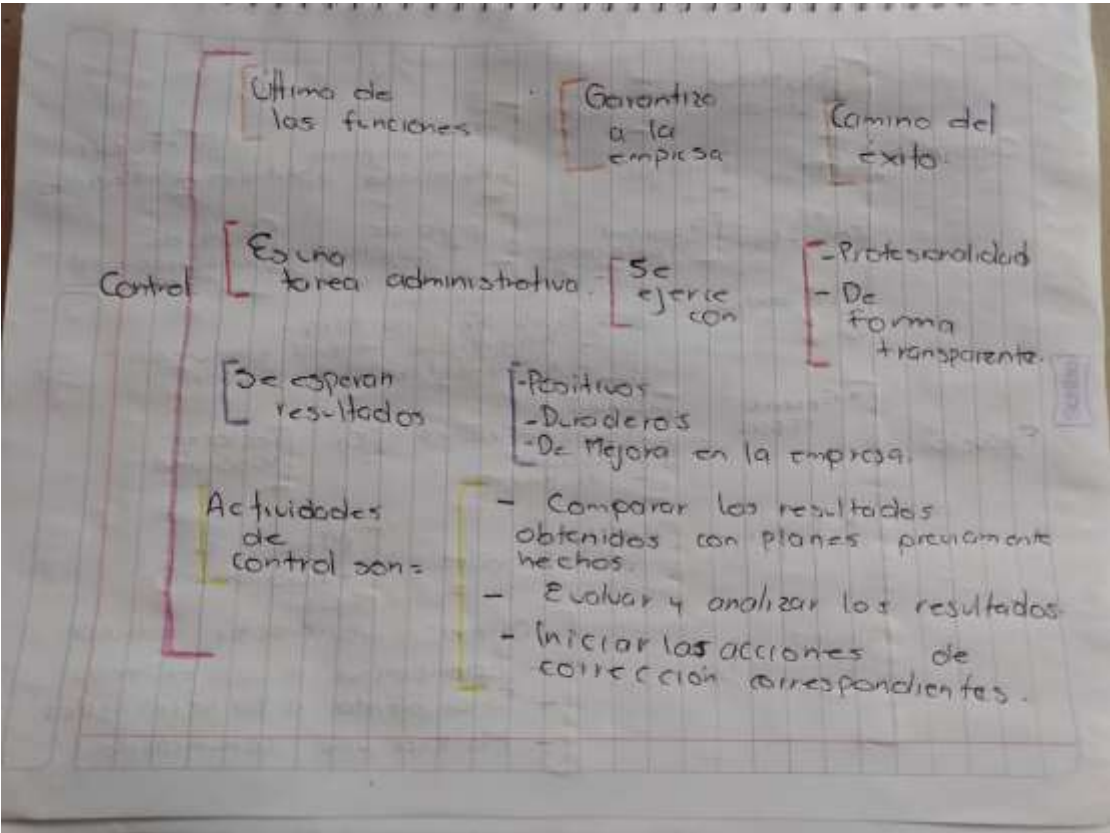 Última de
las funciones
Garantiza
a la
empresa
Camino del
éxito.
Control
Es una
tarea administrativa.
Se
ejerce
con
- Profesionalidad
- De
forma
transparente.
Se esperan
resultados
- Positivos
- Duraderos
- De Mejora en la empresa.
Actividades
de
control son=
- Comparar los resultados
obtenidos con planes previamente
hechos.
- Evaluar y analizar los resultados.
- Iniciar las acciones de
corrección correspondientes.